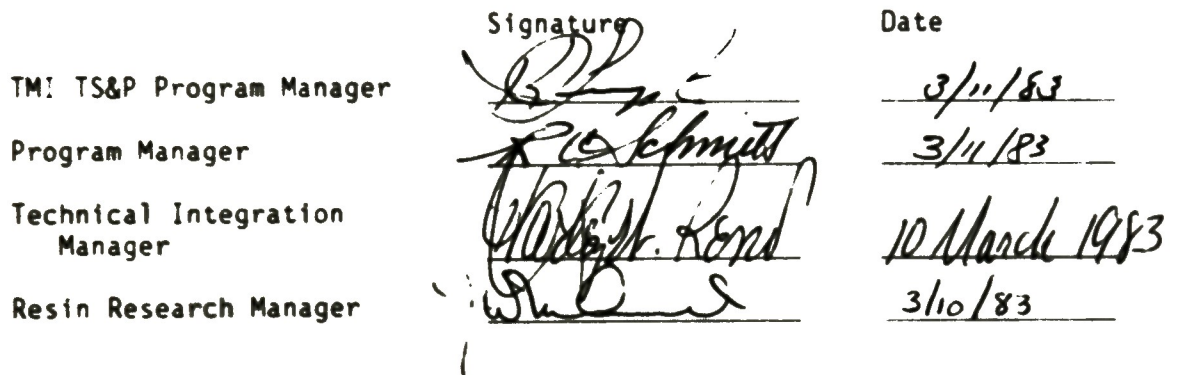 Signature Date
TMI TS&P Program Manager 3/11/83
Program Manager Schmitt 3/11/83
Technical Integration 10 March 1983
Manager
Resin Research Manager 3/10/83